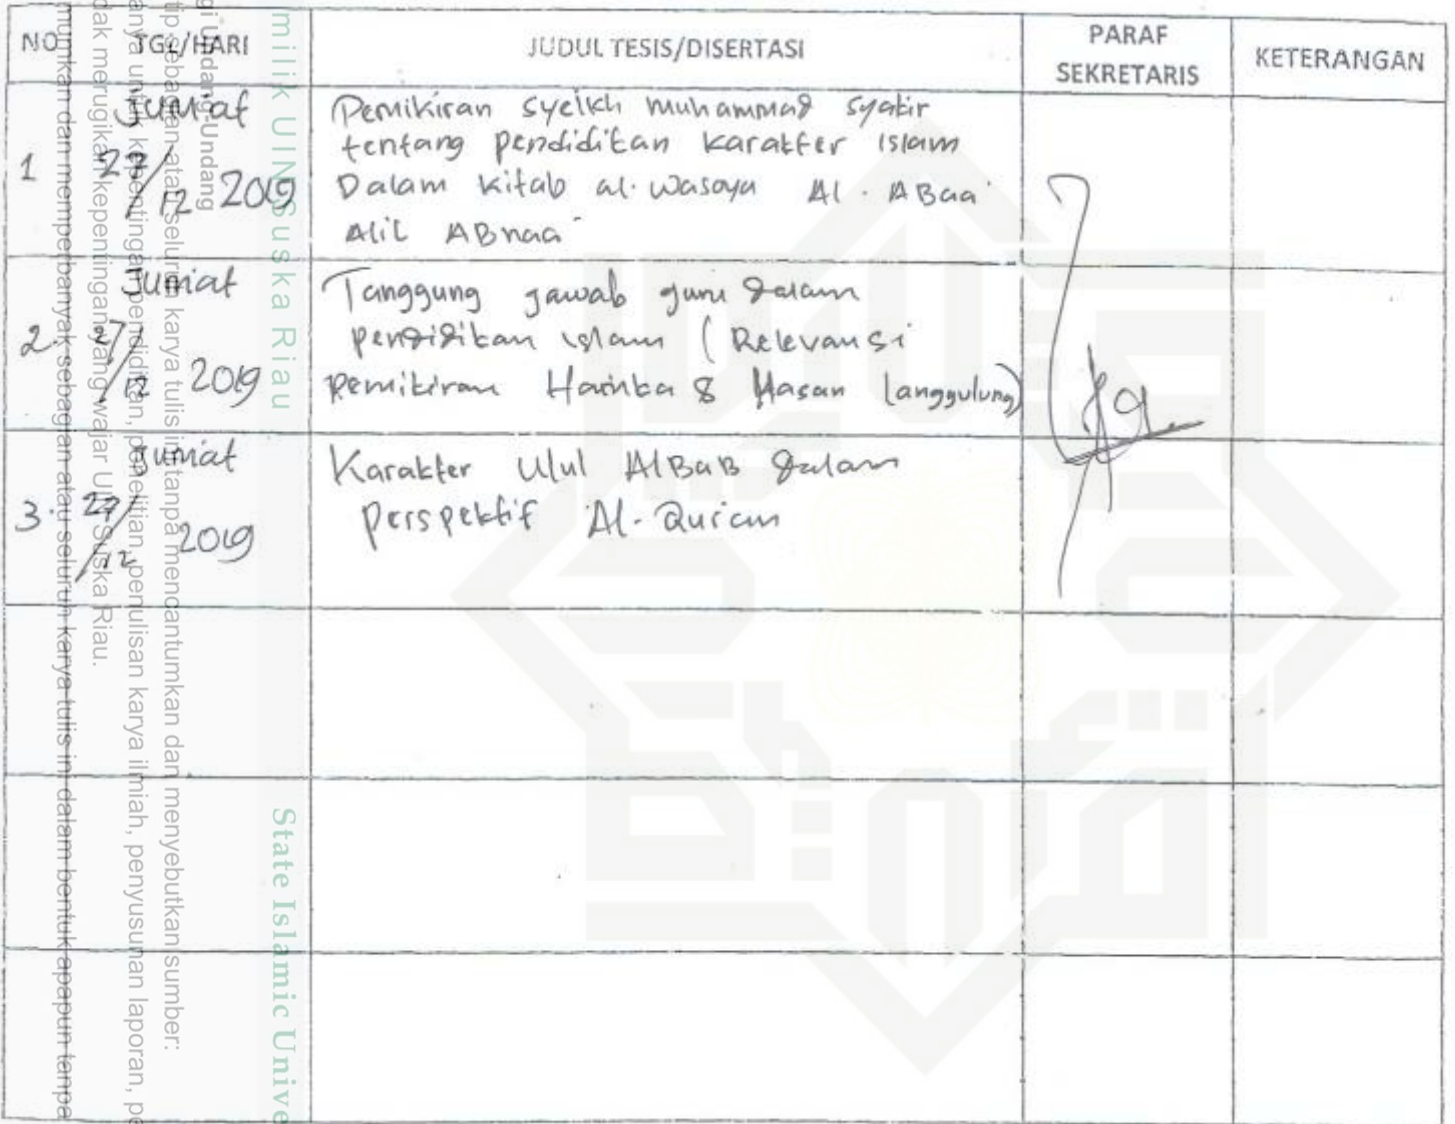 NO
TGL/HARI
JUDUL TESIS/DISERTASI
PARAF
SEKRETARIS
KETERANGAN
1
Jumat
27/12 2019
Pemikiran syeikh muhammad syakir
tentang pendidikan karakter Islam
Dalam kitab al-wasoya Al-ABaa'
Alil ABnaa'
2.
Jumat
27/12 2019
Tanggung jawab guru dalam
pendidikan islam ( Relevansi
pemikiran Hamka & Hasan langgulung)
3.
Jumat
27/12 2019
Karakter Ulul AlBaB dalam
perspektif Al-Qur'an
milik UIN Suska Riau
State Islamic Unive
gi Undang-Undang
tip sebagian atau seluruh karya tulis ini tanpa mencantumkan dan menyebutkan sumber:
anya untuk kepentingan pendidikan, penelitian, penulisan karya ilmiah, penyusunan laporan, pe
dak merugikan kepentingan yang wajar UIN Suska Riau.
mumkan dan memperbanyak sebagian atau seluruh karya tulis ini dalam bentuk apapun tanpa